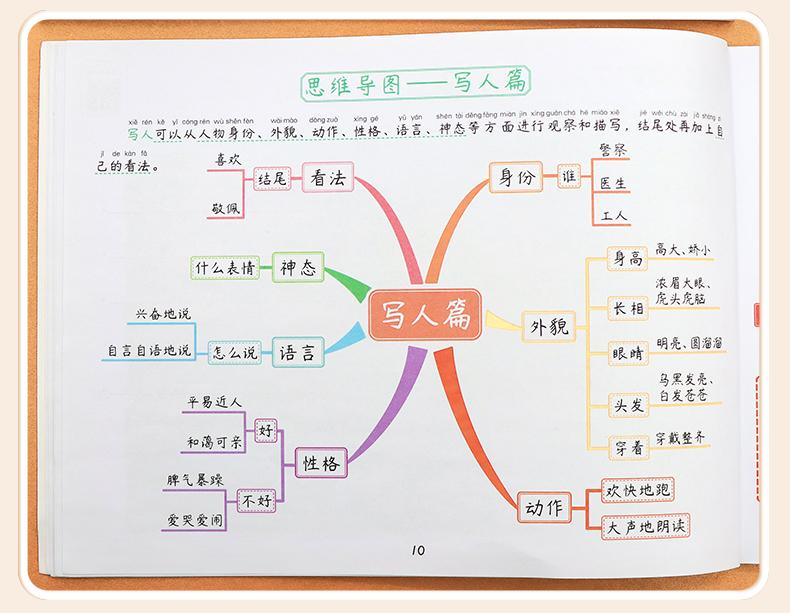 思维导图——写人篇
xiě rén kě yǐ cóng rén wù shēn fèn wài mào dòng zuò xìng gé yǔ yán shén tài děng fāng miàn jìn xíng guān chá hé miáo xiě jié wěi chù zài jiā shàng zì
写人可以从人物身份、外貌、动作、性格、语言、神态等方面进行观察和描写，结尾处再加上自
jǐ de kàn fǎ
己的看法。
喜欢
敬佩
结尾
看法
身份
谁
警察
医生
工人
什么表情
神态
兴奋地说
自言自语地说
怎么说
语言
写人篇
外貌
身高
高大、娇小
长相
浓眉大眼、
虎头虎脑
眼睛
明亮、圆溜溜
头发
乌黑发亮、
白发苍苍
穿着
穿戴整齐
平易近人
和蔼可亲
好
脾气暴躁
爱哭爱闹
不好
性格
动作
欢快地跑
大声地朗读
10